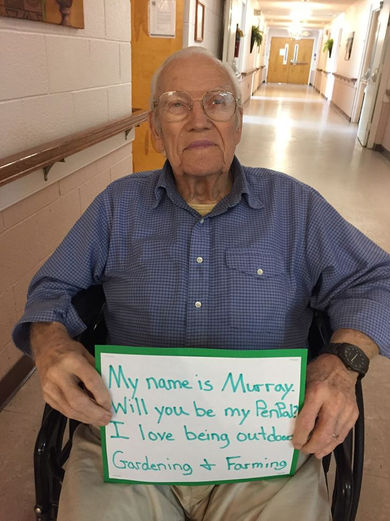 My name is Murray.
Will you be my PenPal?
I love being outdoor
Gardening & Farming